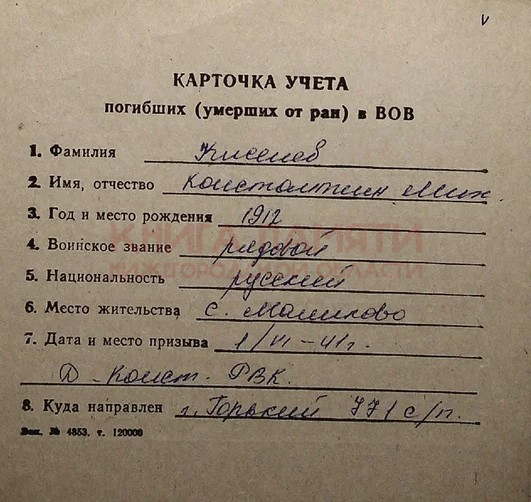 КАРТОЧКА УЧЕТА
погибших (умерших от ран) в ВОВ
1. Фамилия Киселев
2. Имя, отчество Константин Мих.
3. Год и место рождения 1912
КНИГА ПАМЯТИ
4. Воинское звание рядовой
НИЖЕГОРОДСКОЙ ОБЛАСТИ
5. Национальность русский
6. Место жительства с. Маликово
7. Дата и место призыва 1/VI-41г.
Д-Конст. РВК.
8. Куда направлен г. Горький 771 с/п.
Зак. № 4853. т. 120000